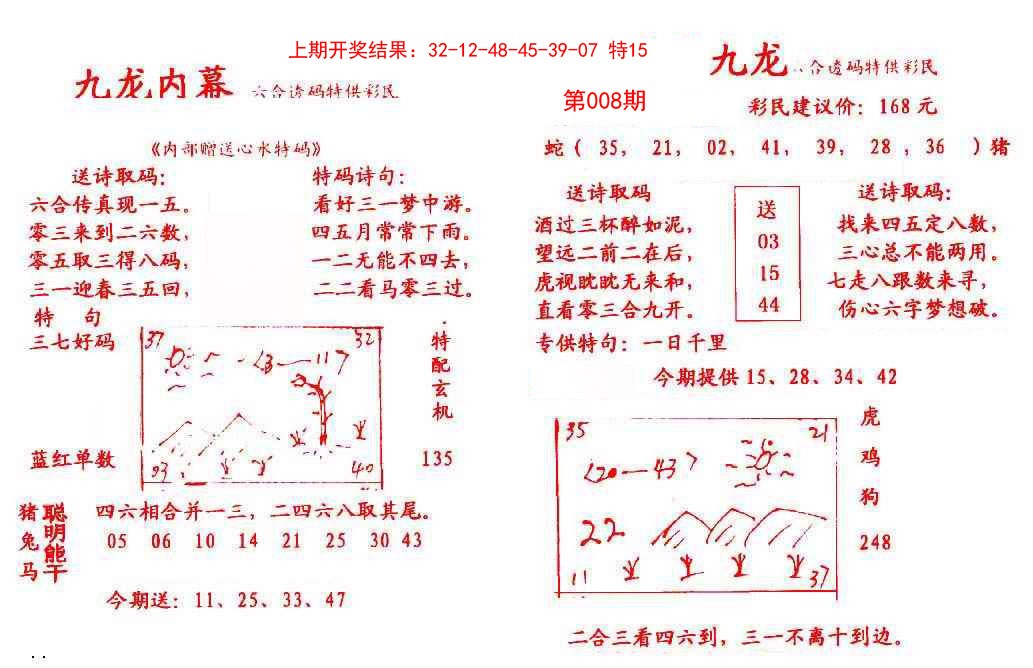 上期开奖结果：32-12-48-45-39-07 特15
九龙内幕 六合透码特供彩民
《内部赠送心水特码》
送诗取码：
六合传真现一五。
零三来到二六数，
零五取三得八码，
三一迎春三五回，
特 句
三七好码
蓝红单数
特码诗句：
看好三一梦中游。
四五月常常下雨。
一二无能不四去，
二二看马零三过。
37 32
03 40
特配玄机
135
猪兔马
聪明能干
四六相合并一三，二四六八取其尾。
05 06 10 14 21 25 30 43
今期送：11、25、33、47
九龙 六合透码特供彩民
第008期
彩民建议价：168元
蛇（ 35， 21， 02， 41， 39， 28 ，36 ）猪
送诗取码
酒过三杯醉如泥，
望远二前二在后，
虎视眈眈无来和，
直看零三合九开。
送
03
15
44
送诗取码：
找来四五定八数，
三心总不能两用。
七走八跟数来寻，
伤心六字梦想破。
专供特句：一日千里
今期提供15、28、34、42
35 21
20—43
22
11 37
虎
鸡
狗
248
二合三看四六到，三一不离十到边。
..